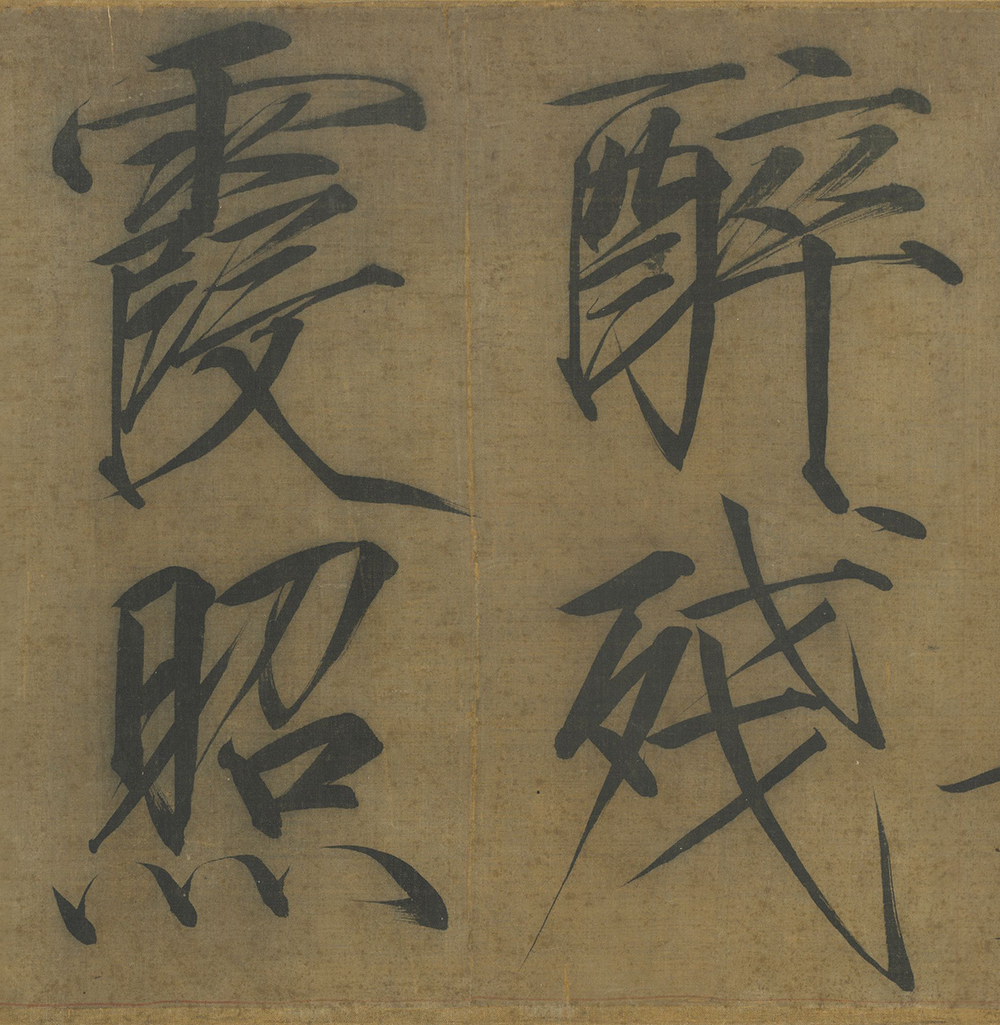 醉殘
霞照